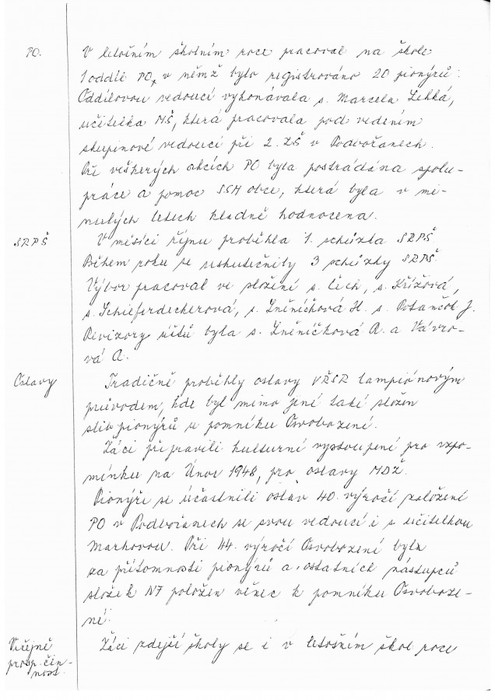 PO. V letošním školním roce pracoval na škole
1 oddíl PO, v němž bylo registrováno 20 pionýrů.
Oddílovou vedoucí vykonávala s. Marcela Lehká,
učitelka MŠ, která pracovala pod vedením
skupinové vedoucí při 2. ZŠ v Podbořanech.
Při veškerých akcích PO byla postrádána spolu-
práce a pomoc SSM obce, která byla v mi-
nulých letech kladně hodnocena.
SRPŠ V měsíci říjnu proběhla 1. schůzka SRPŠ
Během roku se uskutečnily 3 schůzky SRPŠ.
Výbor pracoval ve složení s. Lich, s. Křížová,
s. Schieferdeckerová, s. Sněníčková H. s. Ostančol J.
Revizory účtů byla s. Sněníčková A. a Vávro-
vá A.
Oslavy Tradičně proběhly oslavy VŘSR lampiónovým
průvodem, kde byl mimo jené také složen
slib pionýrů u pomníku Osvobození.
Žáci připravili kulturní vystoupení pro vzpo-
mínku na Únor 1948, pro oslavy MDŽ.
Pionýři se účastnili oslav 40. výročí založení
PO v Podbořanech se svou vedoucí i s učitelkou
Markovou. Při 44. výročí Osvobození byla
za přítomnosti pionýrů a ostatních zástupců
složek NF položen věnec k pomníku Osvoboze-
ní.
Veřejně
prosp. čin-
nost. Žáci zdejší školy se i v letošním škol. roce